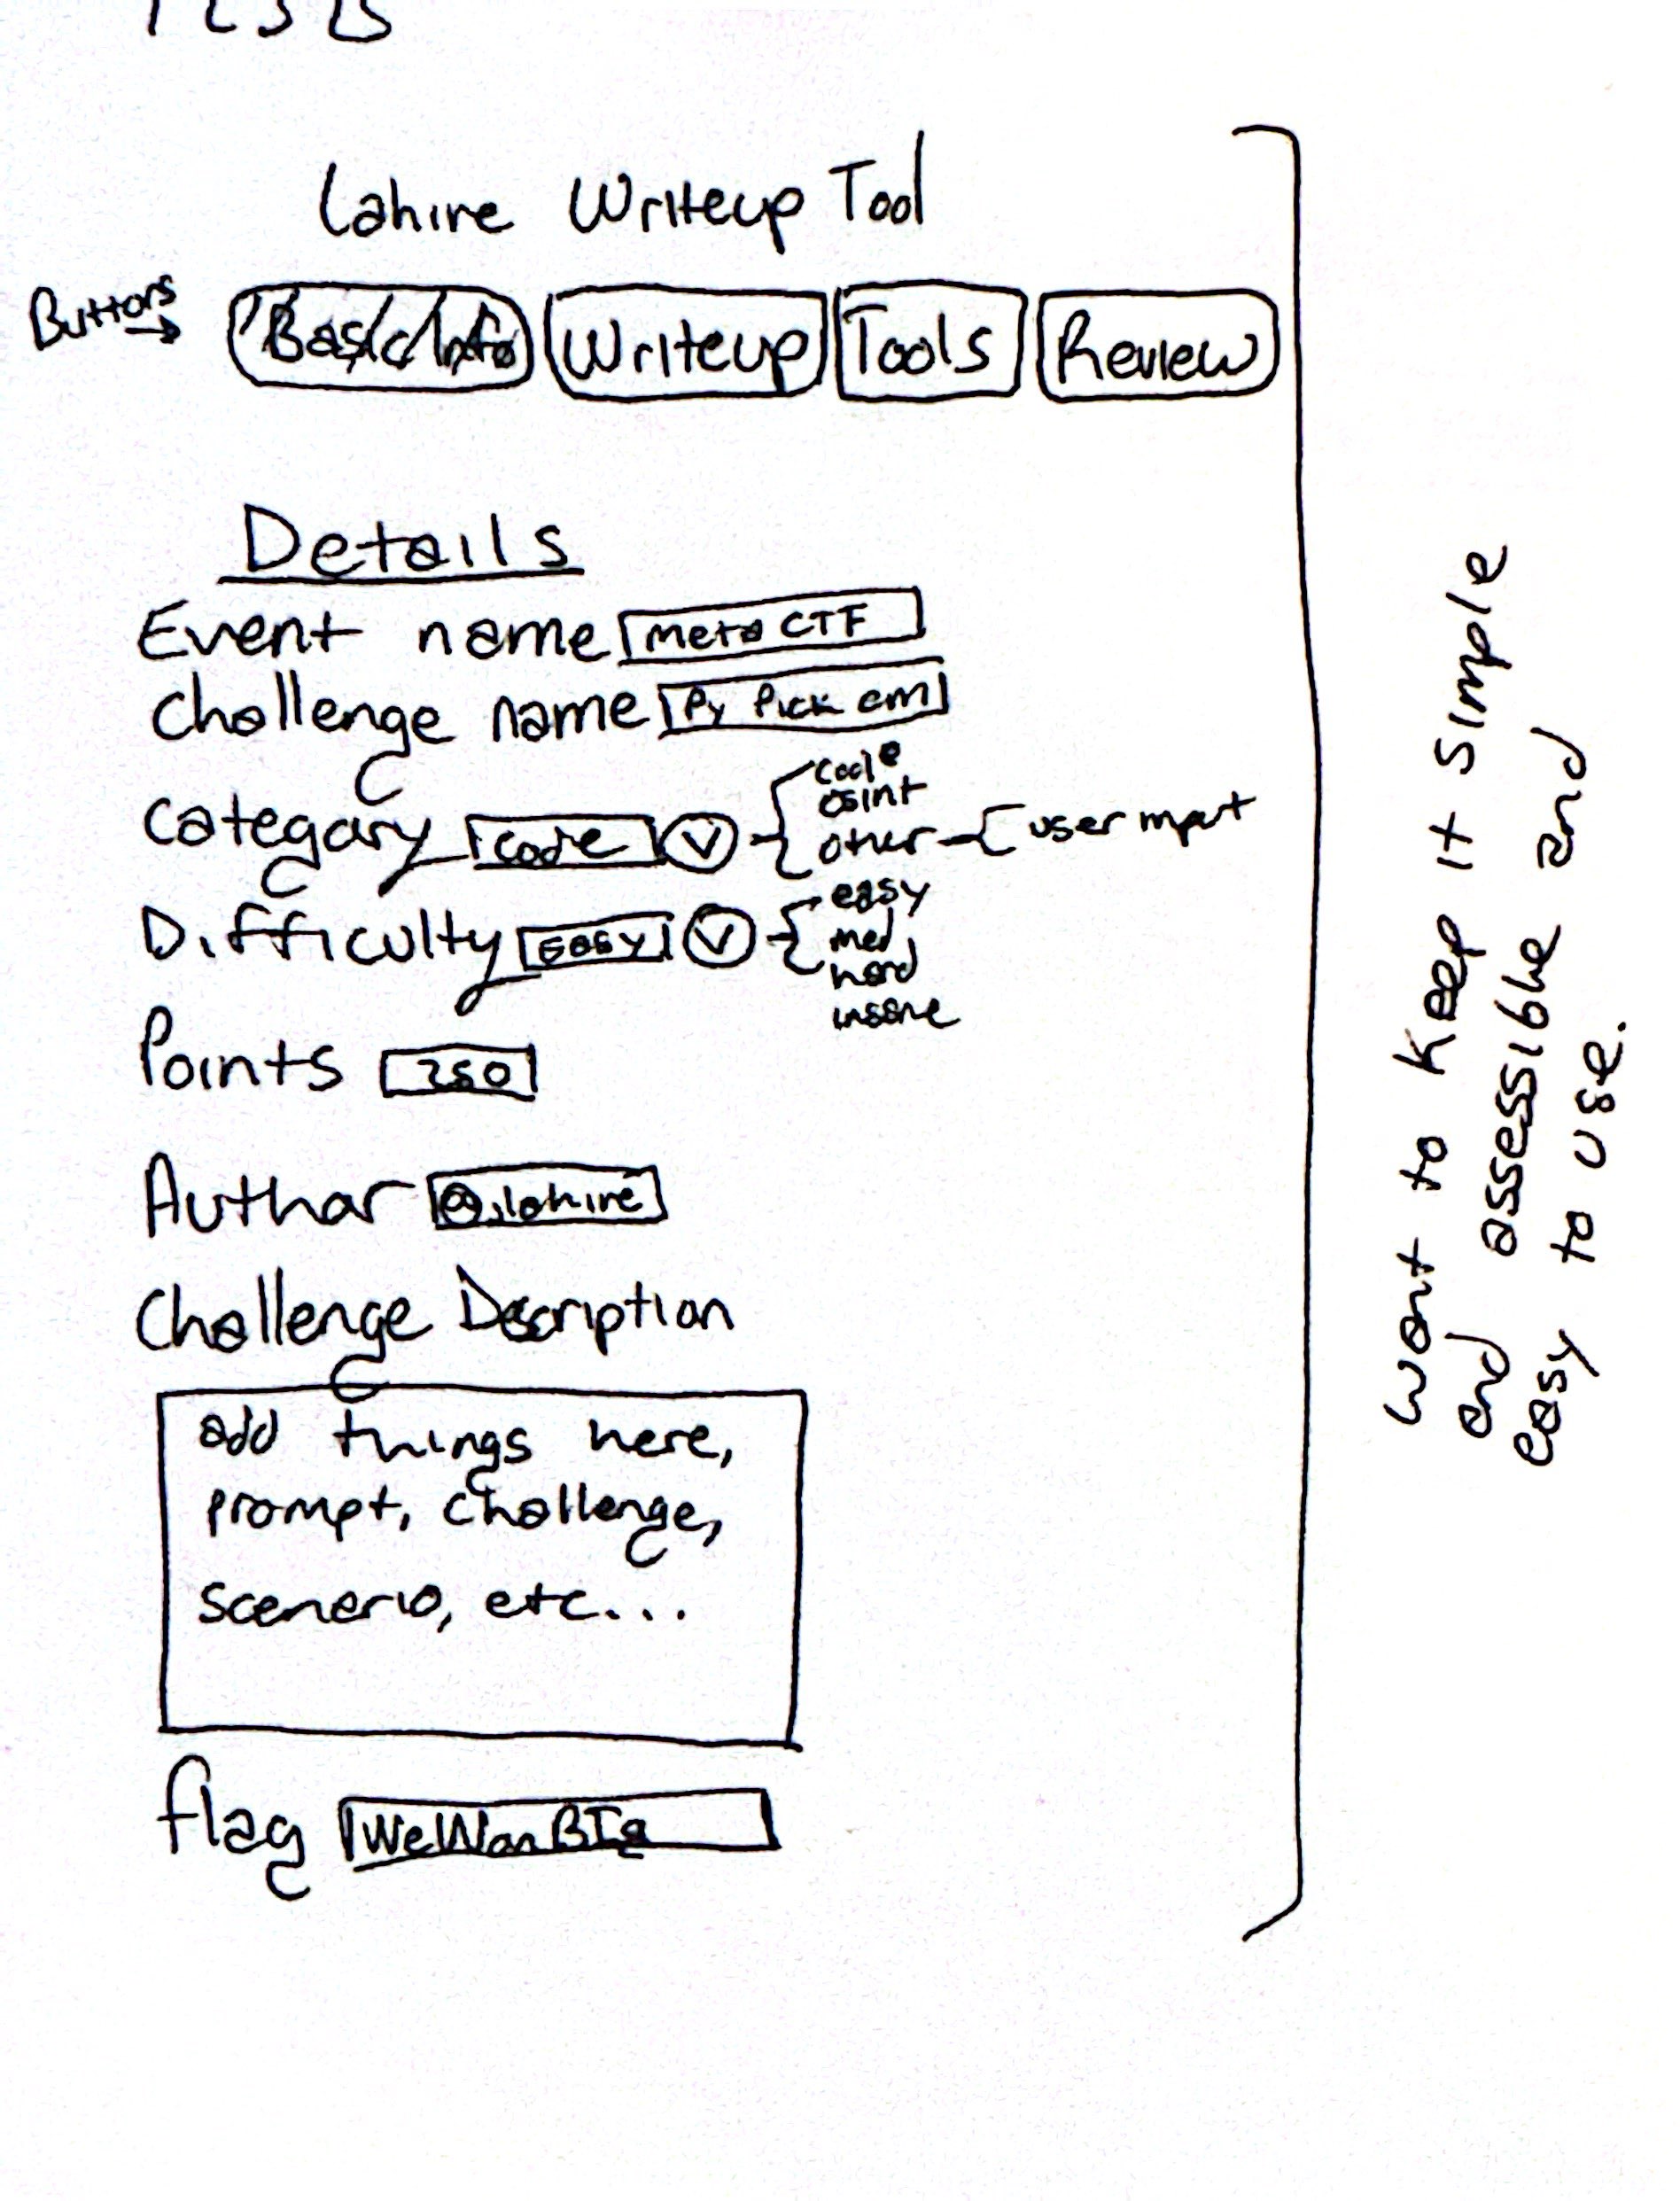 Lahire Writeup Tool
Buttons
Basic Info Writeup Tools Review
Details
Event name Meta CTF
Challenge name Py Pick em
Category code
code
osint
other user input
Difficulty easy
easy
med
hard
insane
Points 250
Author @ilahire
Challenge Description
add things here,
prompt, challenge,
scenerio, etc...
flag WeWonBIg
want to keep it simple
and assessible and
easy to use.